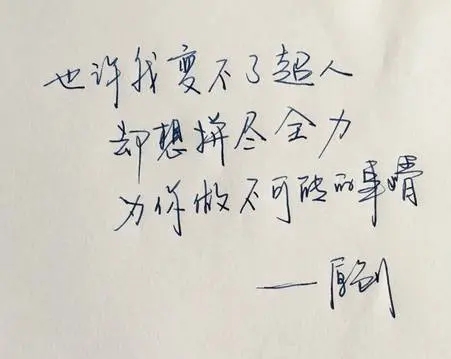 也许我变不了超人
却想拼尽全力
为你做不可能的事情
——原创